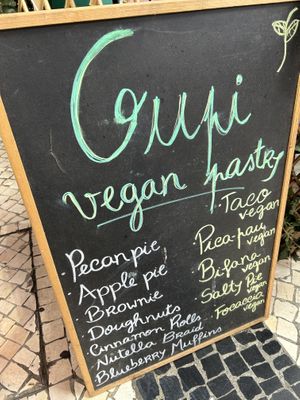 Gupi
vegan pastry
· Pecan pie
· Apple pie
· Brownie
· Doughnuts
· Cinnamon Rolls
· Nutella Braid
· Blueberry Muffins
· Taco
vegan
· Pica-pau
vegan
· Bifana
vegan
· Salty Pie
vegan
· Focaccia
vegan